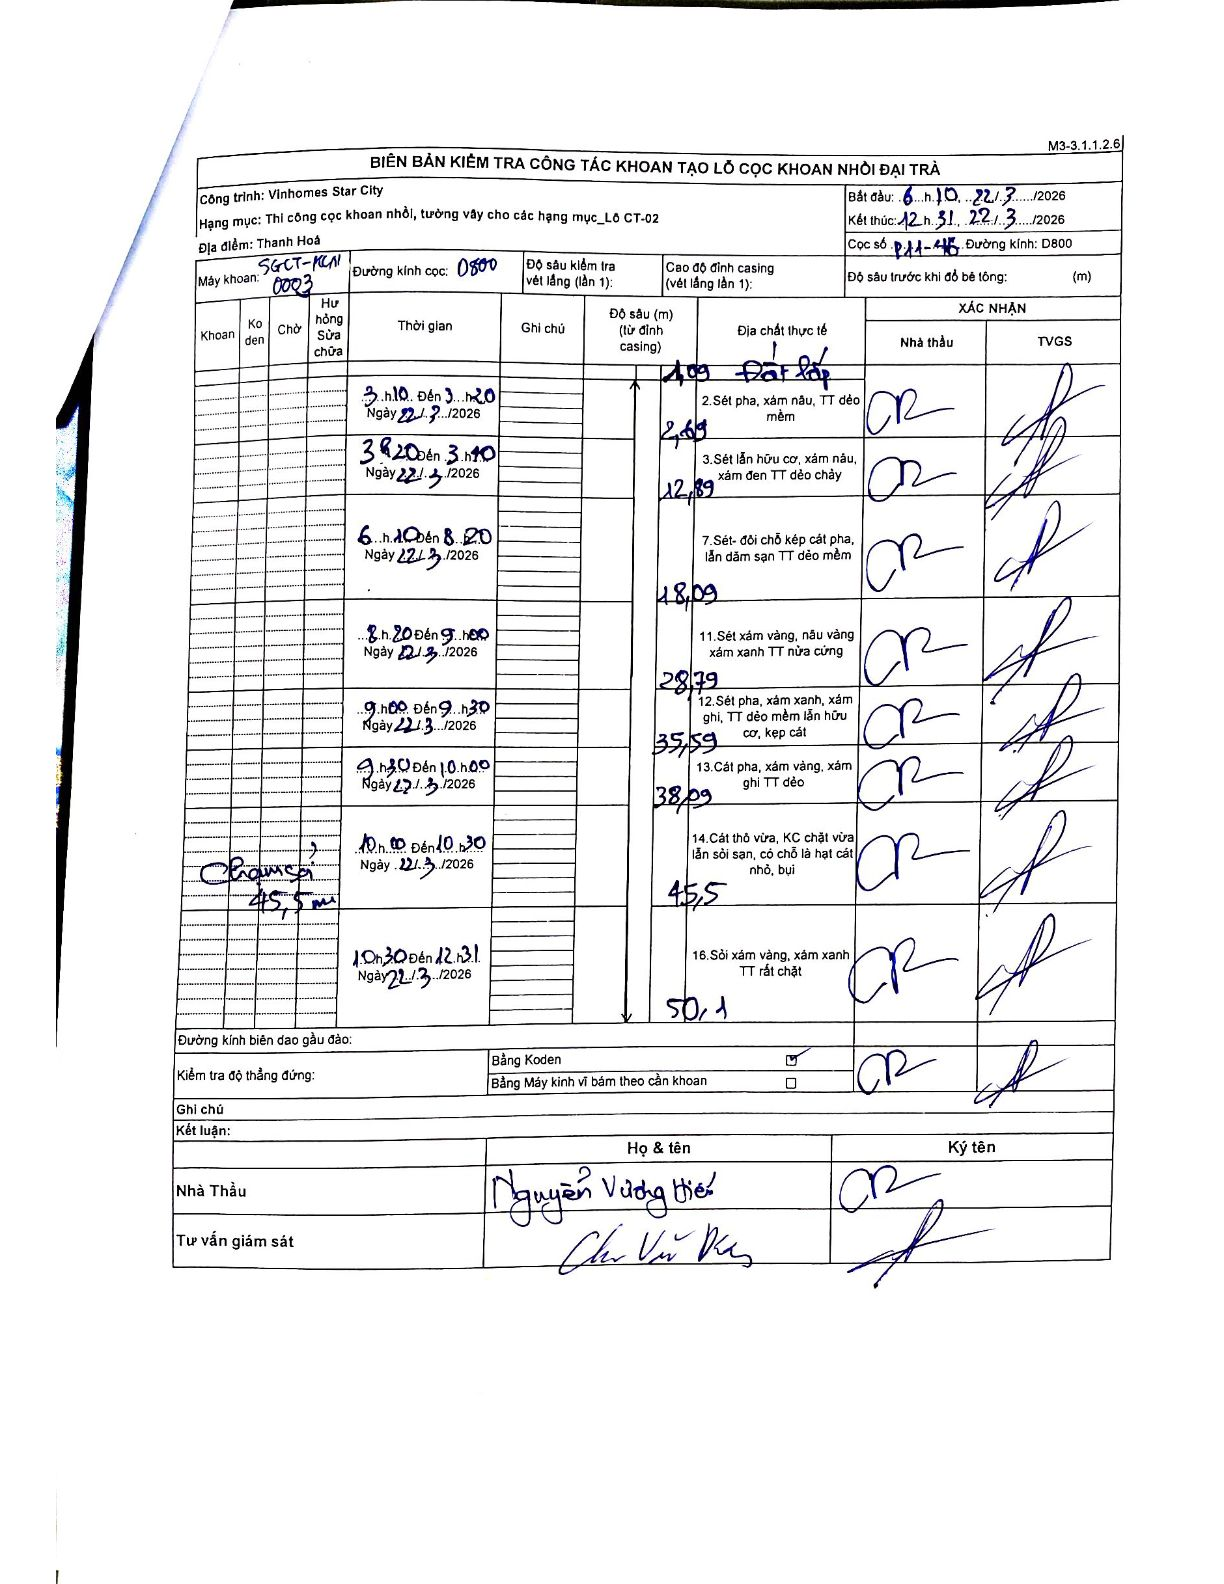 M3-3.1.1.2.6
BIÊN BẢN KIỂM TRA CÔNG TÁC KHOAN TẠO LỖ CỌC KHOAN NHỒI ĐẠI TRÀ
Công trình: Vinhomes Star City
Hạng mục: Thi công cọc khoan nhồi, tường vây cho các hạng mục_Lô CT-02
Địa điểm: Thanh Hoá
Bắt đầu: 6 h 10, 22/3/2026
Kết thúc: 12 h 31, 22/3/2026
Cọc số P11-46 Đường kính: D800
Máy khoan: SGCT-KCN 0003
Đường kính cọc: D800
Độ sâu kiểm tra vét lắng (lần 1):
Cao độ đỉnh casing (vét lắng lần 1):
Độ sâu trước khi đổ bê tông: (m)
Khoan
Ko den
Chờ
Hư hỏng Sửa chữa
Thời gian
Ghi chú
Độ sâu (m) (từ đỉnh casing)
Địa chất thực tế
XÁC NHẬN
Nhà thầu
TVGS
1,09 Đất lấp
3 h 10 Đến 3 h 20
Ngày 22/3/2026
2.Sét pha, xám nâu, TT dẻo
mềm
2,69
3 h 20 Đến 3 h 40
Ngày 22/3/2026
3.Sét lẫn hữu cơ, xám nâu,
xám đen TT dẻo chảy
12,89
6 h 10 Đến 8 20
Ngày 22/3/2026
7.Sét- đôi chỗ kép cát pha,
lẫn dăm sạn TT dẻo mềm
18,09
8 h 20 Đến 9 h 00
Ngày 22/3/2026
11.Sét xám vàng, nâu vàng
xám xanh TT nửa cứng
28,79
9 h 00 Đến 9 h 30
Ngày 22/3/2026
12.Sét pha, xám xanh, xám
ghi, TT dẻo mềm lẫn hữu
cơ, kẹp cát
35,59
9 h 30 Đến 10 h 00
Ngày 22/3/2026
13.Cát pha, xám vàng, xám
ghi TT dẻo
38,09
10 h 00 Đến 10 h 30
Ngày 22/3/2026
14.Cát thô vừa, KC chặt vừa
lẫn sỏi sạn, có chỗ là hạt cát
nhỏ, bụi
Chạm sỏi
45,5 m
45,5
10 h 30 Đến 12 h 31
Ngày 22/3/2026
16.Sỏi xám vàng, xám xanh
TT rất chặt
50,1
Đường kính biên dao gầu đào:
Kiểm tra độ thẳng đứng:
Bằng Koden
Bằng Máy kinh vĩ bám theo cần khoan
Ghi chú
Kết luận:
Họ & tên
Ký tên
Nhà Thầu
Nguyễn Vương Hiếu
Tư vấn giám sát